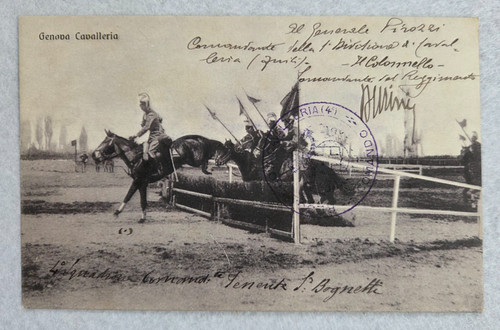 Genova Cavalleria
Il Generale Pirozzi
Comandante della 1ª Divisione di Caval-
leria
Il Colonnello
Comandante del Reggimento
LERIA (4°)
(•)
Tenente Sʳ Bognetti